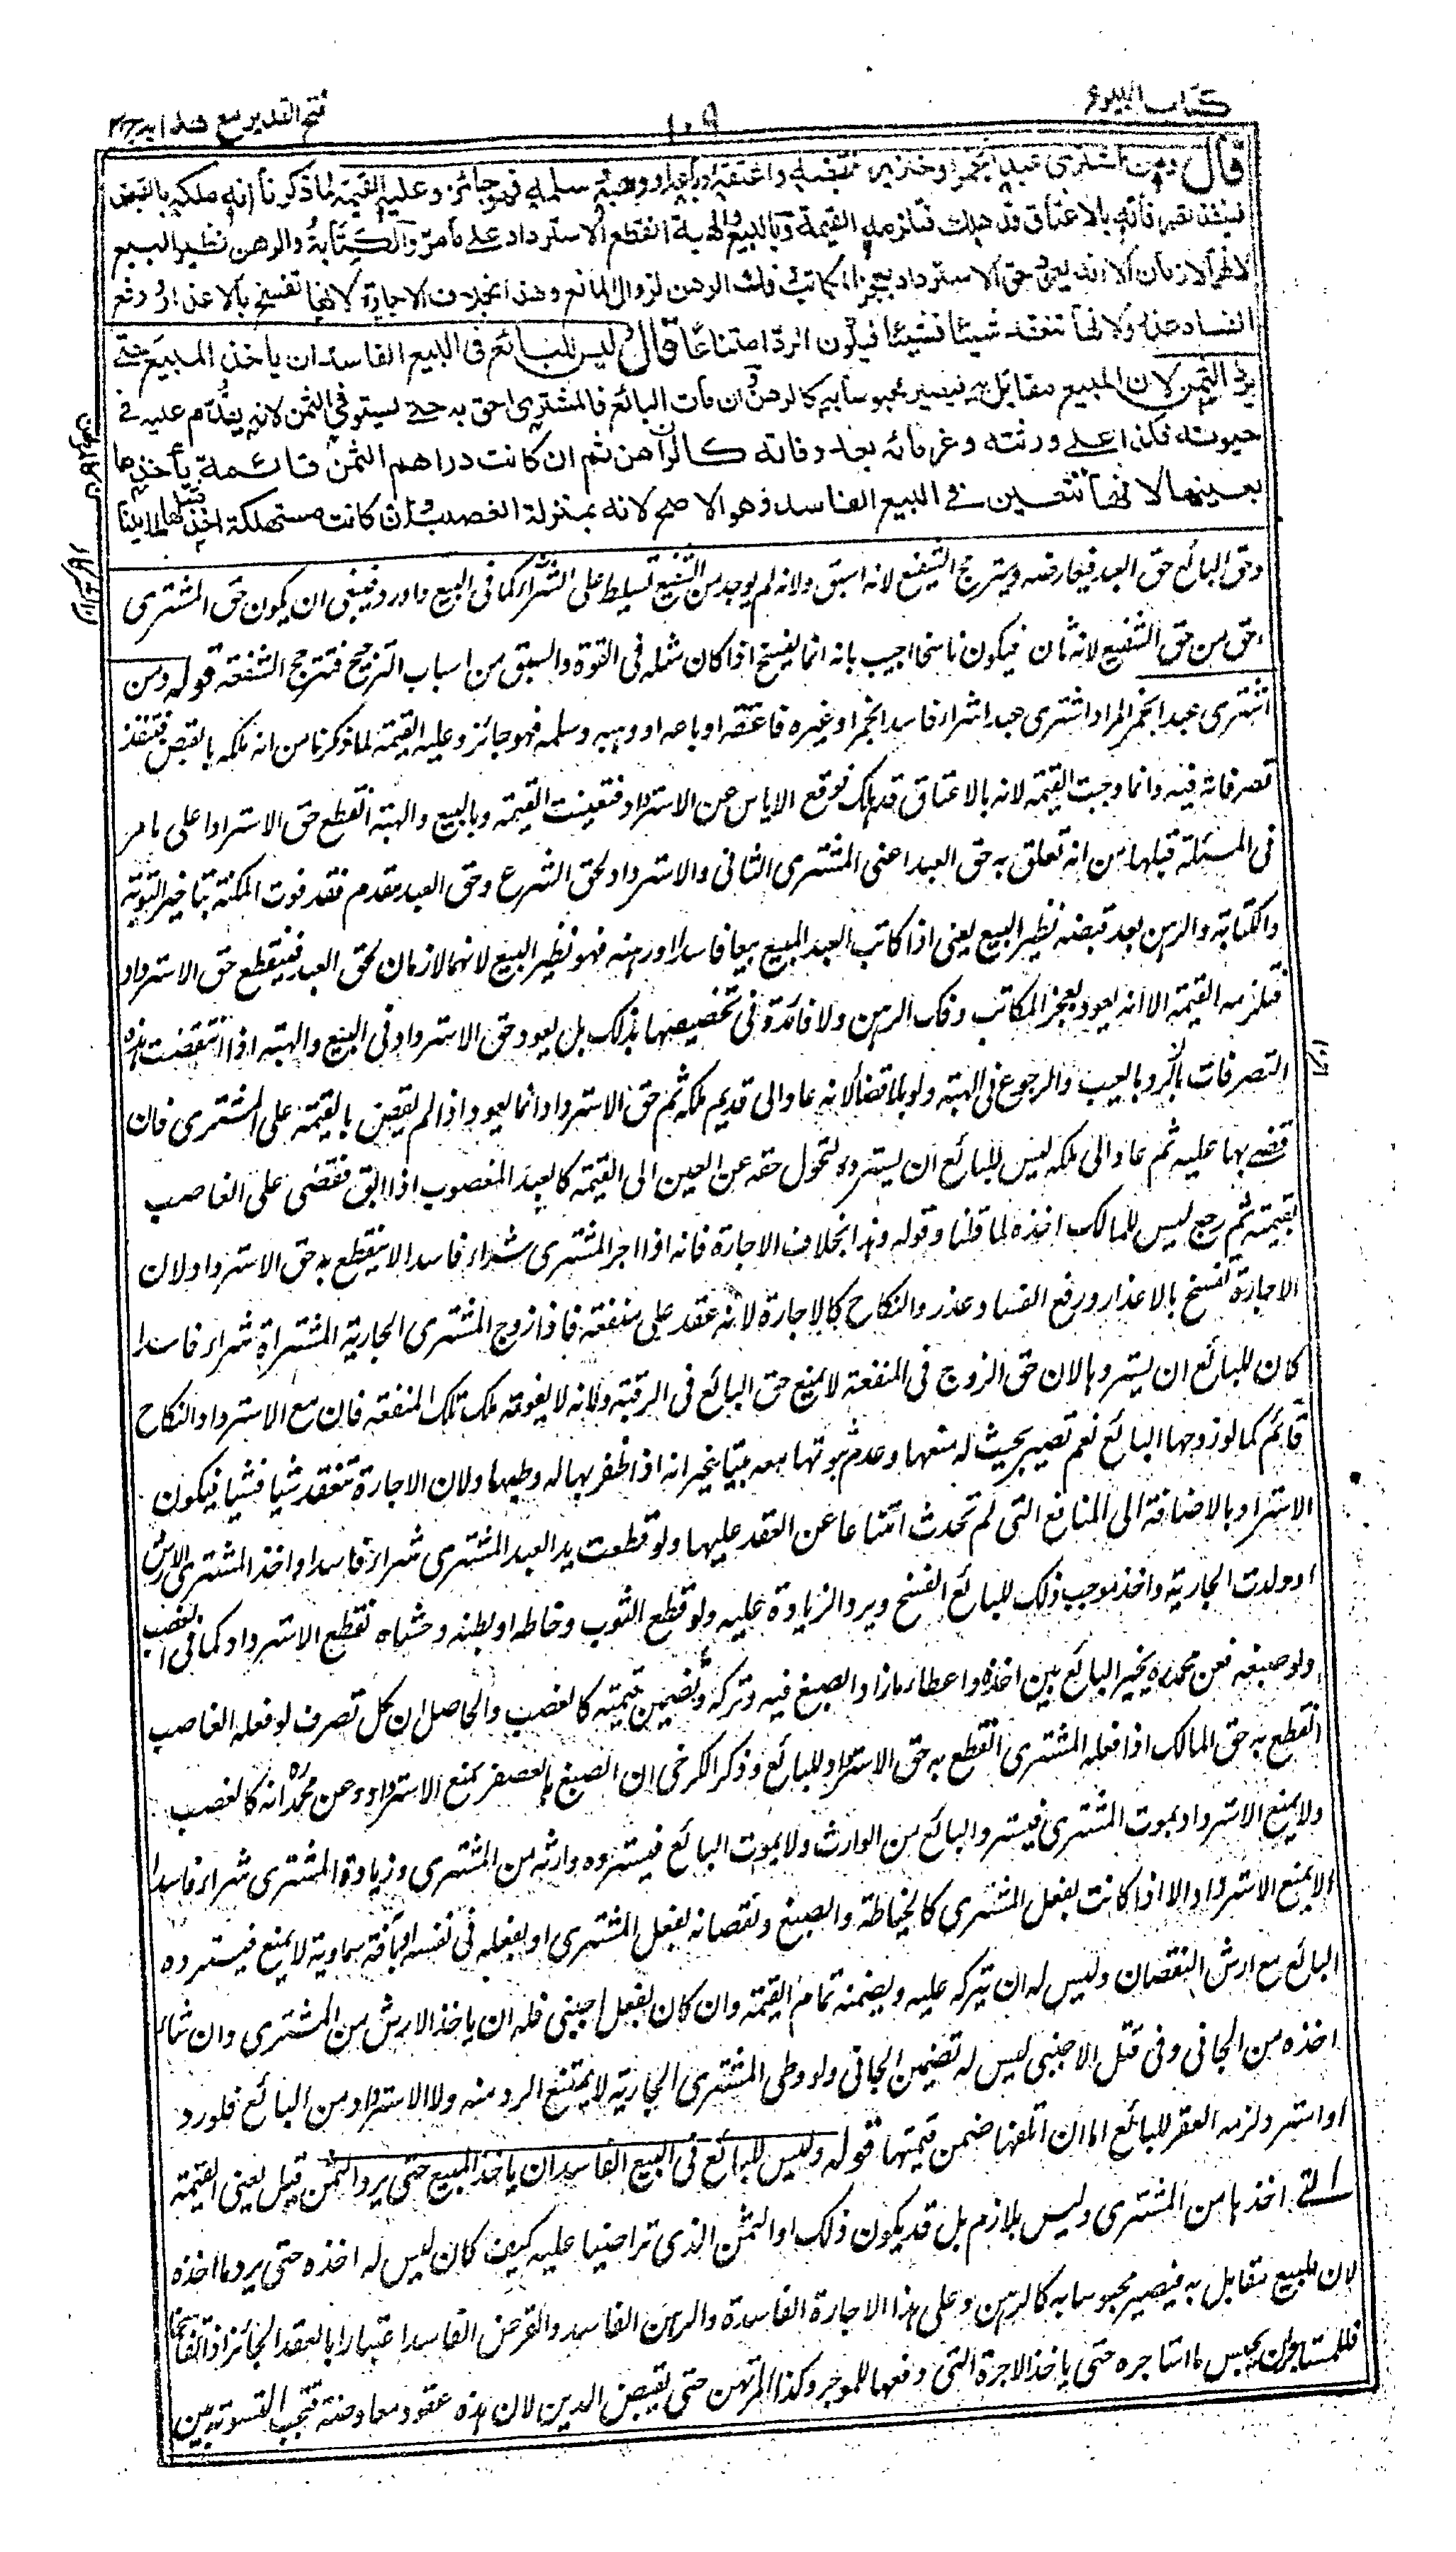 كتاب البيوع
١٠٩
فتح القدير مع هدايه ج ٣
قال ومن اشترى عبدا بخمر او خنزير فقبضه واعتقه او باعه او وهبه وسلمه فهو جائز وعليه القيمة لما ذكرنا انه ملكه بالقبض
فينفذ تصرفاته بالاعتاق قد هلك فتلزمه القيمة وبالبيع والهبة انقطع الاسترداد على ما مر والكتابة والرهن نظير البيع
لانهما لازمان الا انه يعود حق الاسترداد بعجز المكاتب وفك الرهن لزوال المانع وهذا بخلاف الاجارة لانها تفسخ بالاعذار ورفع
الفساد عذر ولانها تنعقد شيئا فشيئا فيكون الرد امتناعا قال ليس للبائع فى البيع الفاسد ان ياخذ المبيع حتى
يرد الثمن لان المبيع مقابل به فيصير محبوسا به كالرهن وان مات البائع فالمشترى احق به حتى يستوفى الثمن لانه يقدم عليه فى
حيوته فكذا على ورثته وغرمائه بعد وفاته كالراهن ثم ان كانت دراهم الثمن قائمة ياخذها
بعينها لانها تتعين فى البيع الفاسد وهو الاصح لانه بمنزلة الغصب وان كانت مستهلكة اخذ مثلها لما بينا
وحق البائع حق العبد فيعارضه ويترجح الشفيع لانه اسبق ولانه لم يوجد من الشفيع تسليط على الشراء كما فى البيع واورد فينبغى ان يكون حق المشترى
احق من حق الشفيع لانه ثان فيكون ناسخا اجيب بانه انما يفسخ اذا كان مثله فى القوة والسبق من اسباب الترجيح فتترجح الشفعة قوله ومن
اشترى عبدا بخمر المراد اشترى عبدا شراء فاسدا بخمر او غيره فاعتقه او باعه او وهبه وسلمه فهو جائز وعليه القيمة لما ذكرنا من انه ملكه بالقبض فتنفذ
تصرفاته فيه وانما وجبت القيمة لانه بالاعتاق قد هلك فوقع الاياس عن الاسترداد فتعينت القيمة وبالبيع والهبة انقطع حق الاسترداد على ما مر
فى المسئلة قبلها من انه تعلق به حق العبد اعنى المشترى الثانى والاسترداد لحق الشرع وحق العبد مقدم فقد فوت المكنة بتاخير التوبة
والكتابة والرهن بعد قبضه نظير البيع يعنى اذا كاتب العبد المبيع بيعا فاسدا او رهنه فهو نظير البيع لانهما لازمان لحق العبد فينقطع حق الاسترداد
فتلزمه القيمة الا انه يعود بعجز المكاتب وفك الرهن ولا فائدة فى تخصيصهما بذلك بل يعود حق الاسترداد فى البيع والهبة اذا انتقضت هذه
التصرفات كالرد بالعيب والرجوع فى الهبة ولو بلا قضاء لانه عاد الى قديم ملكه ثم حق الاسترداد انما يعود اذا لم يقض بالقيمة على المشترى فان
قضى بها عليه ثم عاد الى ملكه ليس للبائع ان يسترده لتحول حقه عن العين الى القيمة كالعبد المغصوب اذا ابق فقضى على الغاصب
بقيمته ثم رجع ليس للمالك اخذه لما قلنا وقوله وهذا بخلاف الاجارة فانه اذا اجر المشترى شراء فاسدا لا ينقطع به حق الاسترداد لان
الاجارة تفسخ بالاعذار ورفع الفساد عذر والنكاح كالاجارة لانه عقد على منفعة فاذا زوج المشترى الجارية المشتراة شراء فاسدا
كان للبائع ان يستردها لان حق الزوج فى المنفعة لا يمنع حق البائع فى الرقبة ولانه لا يفوته ملك تلك المنفعة فان مع الاسترداد النكاح
قائم كما لو زوجها البائع نعم تصير بحيث له منعها وعدم تبوئتها معه بيتا غير انه اذا ظفر بها له وطيها ولان الاجارة تنعقد شيئا فشيئا فيكون
الاسترداد بالاضافة الى المنافع التى لم تحدث امتناعا عن العقد عليها ولو قطعت يد العبد المشترى شراء فاسدا واخذ المشترى الارش
او ولدت الجارية واخذ موجب ذلك للبائع الفسخ ويرد الزيادة عليه ولو قطع الثوب وخاطه او بطنه وحشاه انقطع الاسترداد كما فى الغصب
ولو صبغه فعن محمد ره يخير البائع بين اخذه واعطاء ما زاد الصبغ فيه وتركه وتضمين قيمته كالغصب والحاصل ان كل تصرف لو فعله الغاصب
انقطع به حق المالك اذا فعله المشترى انقطع به حق الاسترداد للبائع وذكر الكرخى ان الصبغ بالعصفر يمنع الاسترداد وعن محمد ره انه كالغصب
ولا يمنع الاسترداد بموت المشترى فيسترد البائع من الوارث ولا بموت البائع فيسترده وارثه من المشترى وزيادة المشترى شراء فاسدا
لا يمنع الاسترداد الا اذا كانت بفعل المشترى كالخياطة والصبغ ونقصانه بفعل المشترى او بفعله فى نفسه او بآفة سماوية لا يمنع فيسترده
البائع مع ارش النقصان وليس له ان يتركه عليه ويضمنه تمام القيمة وان كان بفعل اجنبى فله ان ياخذ الارش من المشترى وان شاء
اخذه من الجانى وفى قتل الاجنبى ليس له تضمين الجانى ولو وطى المشترى الجارية لا يمتنع الرد منه ولا الاسترداد من البائع فلو رد
او استرد لزمه العقر للبائع اما ان اتلفها ضمن قيمتها قوله وليس للبائع فى البيع الفاسد ان ياخذ المبيع حتى يرد الثمن قيل يعنى القيمة
التى اخذها من المشترى وليس بلازم بل قد يكون ذلك او الثمن الذى تراضيا عليه كيف كان ليس له اخذه حتى يرد ما اخذه
لان المبيع مقابل به فيصير محبوسا به كالرهن وعلى هذا الاجارة الفاسدة والرهن الفاسد والقرض الفاسد اعتبارا بالعقد الجائز اذا تفاسخا
فللمستاجر ان يحبس ما استاجره حتى ياخذ الاجرة التى دفعها للموجر وكذا المرتهن حتى يقبض الدين لان هذه عقود معاوضة فتجب التسوية بين